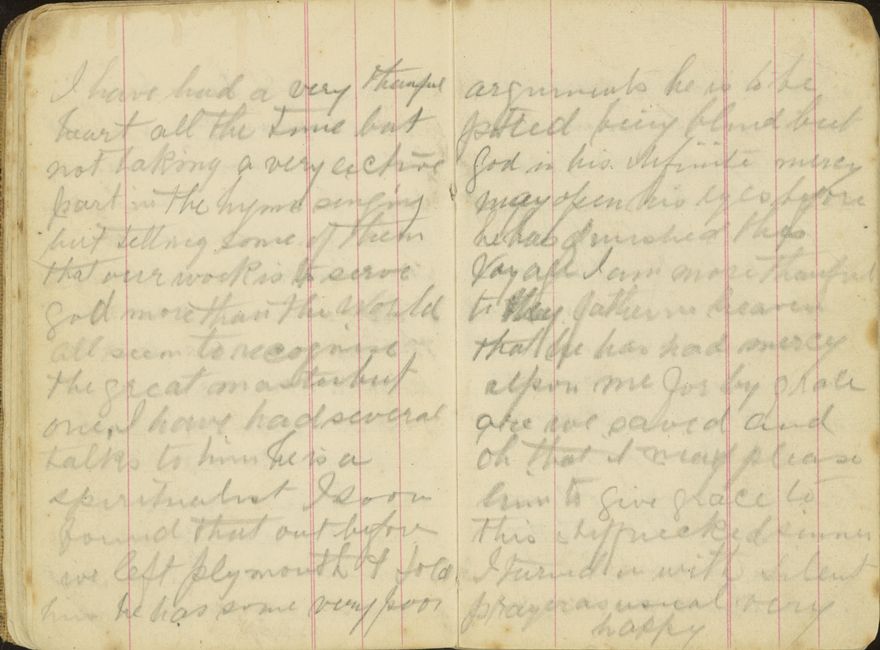 I have had a very thankful
heart all the time but
not taking a very active
part in the hymn singing
but telling some of them
that our work is to serve
god more than the World
all seem to recognise
the great master but
one, I have had several
talks to him he is a
spiritualist I soon
found that out before
we left plymouth & told
him he has some very poor
arguments he is to be
pitied being blind but
god in his infinite mercy
may open his eyes before
he has finished this
Voyage I am more thankful
to my father in heaven
that he has had mercy
alpon me for by grace
are we saved and
oh that it may please
him to give grace to
this stiffnecked sinner
I turned in with silent
prayer as usual very
happy